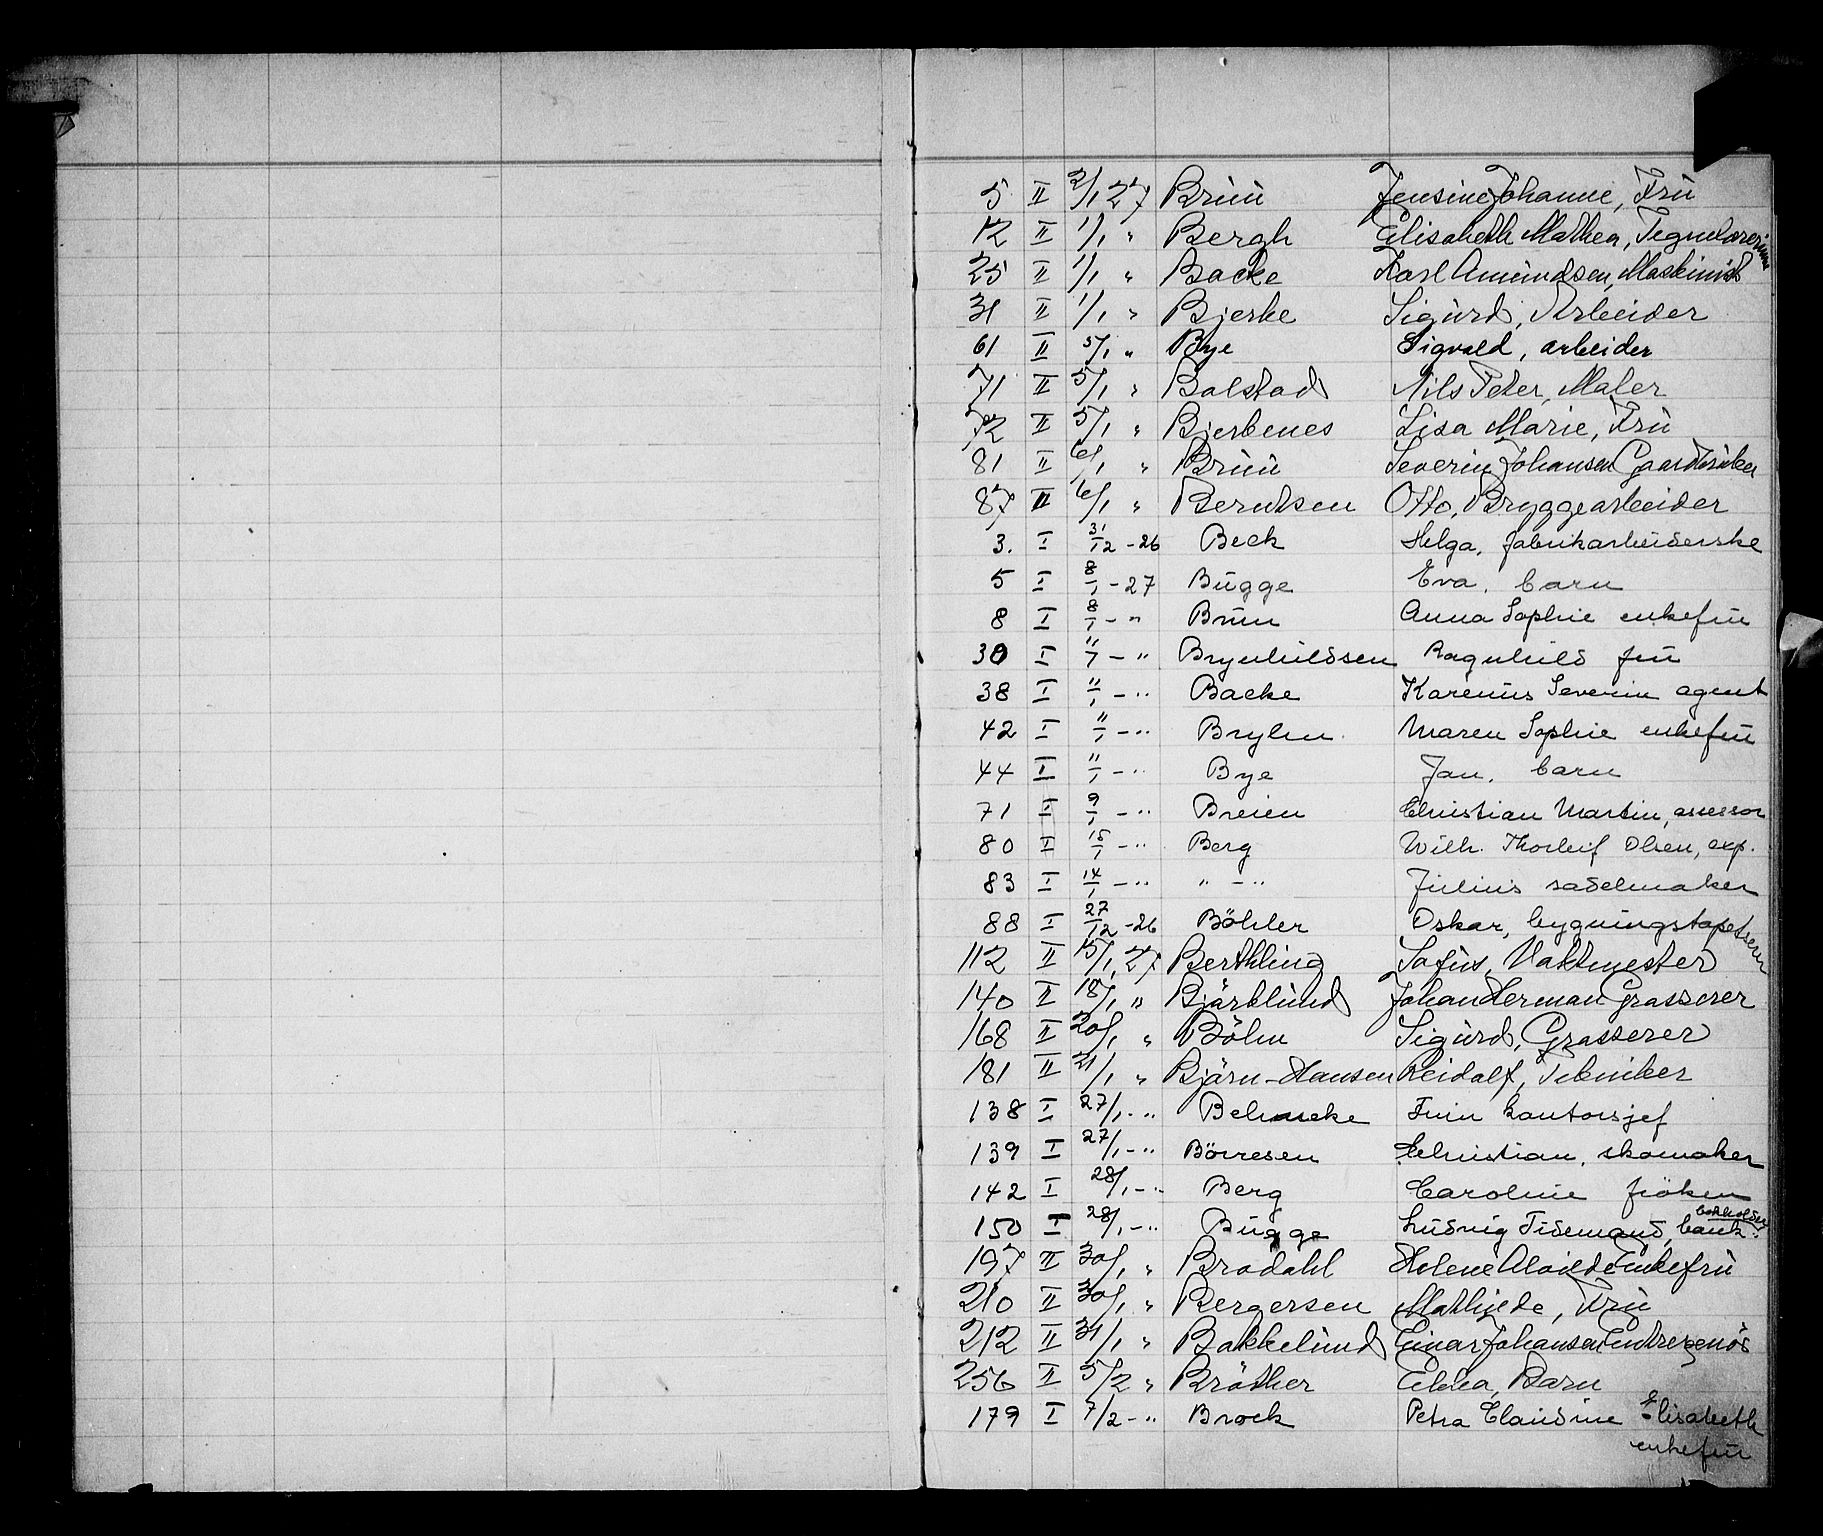 5 II 2/1 27 Brun Jensine Johanne, Fru
12 II 1/1 " Bergh Elisabeth Mathea, Tegnelærerinne
25 II 1/1 " Backe Karl Amundsen, Maskinist
31 II 1/1 " Bjerke Sigurd, Arbeider
61 II 5/1 " Bye Sigvald, arbeider
71 II 5/1 " Bolstad Nils Peter, Maler
72 II 5/1 " Bjerkenes Lisa Marie, Fru
81 II 6/1 " Bruu Severin Johansen Gaardbruker
87 II 6/1 " Berntsen Otto, Bryggearbeider
3. I 31/12 - 26 Beck Helga, fabrikarbeiderske
5 I 8/1 - 27 Bugge Eva, barn
8 I 8/1 - " Bruun Anna Sophie enkefru
30 I 11/1 - " Brynhildsen Ragnhild fru
38 I 11/1 - " Backe Karenius Severin agent
42 I 11/1 - " Bryhn Maren Sophie enkefru
44 I 11/1 - " Bye Jan, barn
71 I 9/1 - " Breien Christian Martin, assessor
80 I 15/1 - " Berg Wilh. Thorleif Olsen, exp.
83 I 14/1 - " " - " Julius sadelmaker
88 I 27/12 - 26 Böhler Oskar, bygningstapetserer
112 II 15/1 27 Berthling Sofus, Vaktmester
140 II 18/1 " Bjärklund Johan Herman Grasserer
168 II 20/1 " Böhn Sigurd, Grasserer
181 II 21/1 " Björn-Hansen Reidalf, Tekniker
138 I 27/1 - " Behncke kontorsjef
139 I 27/1 - " Börresen Christian, skomaker
142 I 28/1 - " Berg Caroline fröken
150 I 28/1 - " Bugge Ludvig Tidemand, bank bokholder
197 II 30/1 " Brodahl Helene Alvilde Enkefru
210 II 30/1 " Bergersen Mathilde, Fru
212 II 31/1 " Bakkelund Einar Johansen Entreprenör
256 II 5/2 " Bräther Ebba, Barn
179 I 7/2 - " Brock Petra Claudine Elisabeth
enkefru